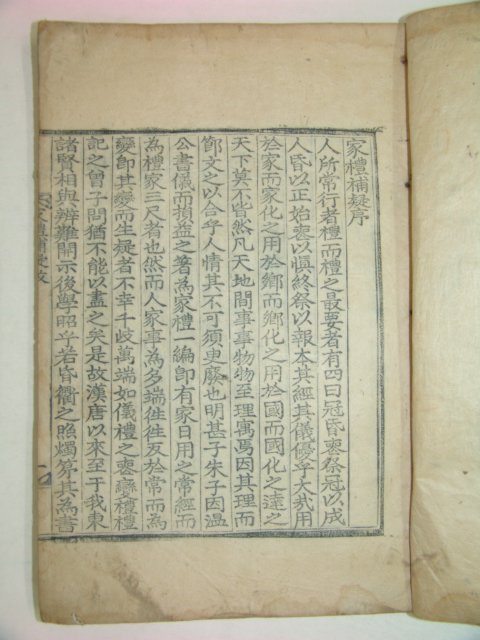 家禮補疑序
人所常行者禮而禮之最要者有四曰冠昏喪祭冠以成
人昏以正始喪以愼終祭以報本其經其儀優乎大哉用
於家而家化之用於鄕而鄕化之用於國而國化之達之
天下莫不皆然凡天地間事事物物至理寓焉因其理而
節文之以合乎人情其不可須臾廢也明甚子朱子因温
公書儀而損益之著為家禮一編卽有家日用之常經而
為禮家三尺者也然而人家事為多端徃徃反於常而為
變卽其變而生疑者不幸千歧萬端如儀禮之喪變禮禮
記之曾子問猶不能以盡之矣是故漢唐以來至于我東
諸賢相與辨難開示後學昭乎若昏衢之照燭第其為書
家禮補疑 序
一